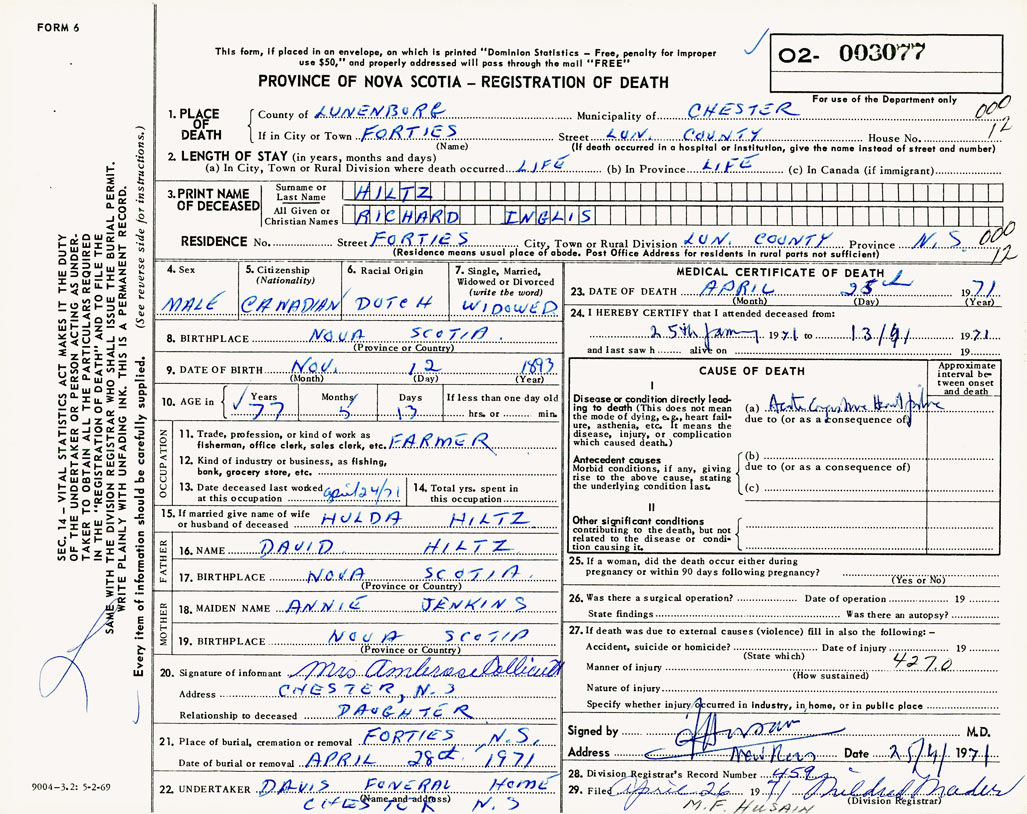 FORM 6
This form, if placed in an envelope, on which is printed "Dominion Statistics – Free, penalty for improper
use $50," and properly addressed will pass through the mail "FREE"
PROVINCE OF NOVA SCOTIA – REGISTRATION OF DEATH
02- 003077
For use of the Department only
000
12
1. PLACE OF DEATH
County of LUNENBURG Municipality of CHESTER
If in City or Town FORTIES Street LUN. COUNTY House No.
(Name) (If death occurred in a hospital or institution, give the name instead of street and number)
2. LENGTH OF STAY (in years, months and days)
(a) In City, Town or Rural Division where death occurred LIFE (b) In Province LIFE (c) In Canada (if immigrant)
3. PRINT NAME OF DECEASED
Surname or Last Name HILTZ
All Given or Christian Names RICHARD INGLIS
RESIDENCE No. Street FORTIES City, Town or Rural Division LUN. COUNTY Province N.S
000
12
(Residence means usual place of abode. Post Office Address for residents in rural parts not sufficient)
4. Sex
MALE
5. Citizenship
(Nationality)
CANADIAN
6. Racial Origin
DUTCH
7. Single, Married,
Widowed or Divorced
(write the word)
WIDOWED
8. BIRTHPLACE NOVA SCOTIA.
(Province or Country)
9. DATE OF BIRTH NOV. 12 1893
(Month) (Day) (Year)
10. AGE in Years Months Days If less than one day old
77 5 13 hrs. or min.
OCCUPATION
11. Trade, profession, or kind of work as
fisherman, office clerk, sales clerk, etc. FARMER
12. Kind of industry or business, as fishing,
bank, grocery store, etc.
13. Date deceased last worked
at this occupation April 24/71
14. Total yrs. spent in
this occupation
15. If married give name of wife
or husband of deceased HULDA HILTZ
FATHER
16. NAME DAVID HILTZ
17. BIRTHPLACE NOVA SCOTIA.
(Province or Country)
MOTHER
18. MAIDEN NAME ANNIE JENKINS
19. BIRTHPLACE NOVA SCOTIA
(Province or Country)
20. Signature of informant Mrs Ambrose
Address CHESTER, N.S
Relationship to deceased DAUGHTER
21. Place of burial, cremation or removal FORTIES N.S.
Date of burial or removal APRIL 28th, 1971
22. UNDERTAKER DAVIS FUNERAL HOME
(Name and address)
CHESTER N.S
MEDICAL CERTIFICATE OF DEATH
23. DATE OF DEATH APRIL 25th 1971
(Month) (Day) (Year)
24. I HEREBY CERTIFY that I attended deceased from:
25th 1971 to 1971
and last saw h alive on 19
CAUSE OF DEATH
Approximate
interval be-
tween onset
and death
I
Disease or condition directly lead-
ing to death (This does not mean
the mode of dying, e.g., heart fail-
ure, asthenia, etc. It means the
disease, injury, or complication
which caused death.)
(a) Acute Congestive Heart failure
due to (or as a consequence of)
Antecedent causes
Morbid conditions, if any, giving
rise to the above cause, stating
the underlying condition last.
(b)
due to (or as a consequence of)
(c)
II
Other significant conditions
contributing to the death, but not
related to the disease or condi-
tion causing it.
25. If a woman, did the death occur either during
pregnancy or within 90 days following pregnancy?
(Yes or No)
26. Was there a surgical operation? Date of operation 19
State findings Was there an autopsy?
27. If death was due to external causes (violence) fill in also the following: –
Accident, suicide or homicide? Date of injury 19
(State which)
4270
Manner of injury
(How sustained)
Nature of injury
Specify whether injury occurred in industry, in home, or in public place
Signed by M.D.
Address New Ross Date 25/4/1971
28. Division Registrar's Record Number 459
29. Filed April 26 1971 Mildred Mader
(Division Registrar)
M.F. HUSAIN
SEC. 14 – VITAL STATISTICS ACT MAKES IT THE DUTY
OF THE UNDERTAKER OR PERSON ACTING AS UNDER-
TAKER TO OBTAIN ALL THE PARTICULARS REQUIRED
IN THE "REGISTRATION OF DEATH" AND TO FILE THE
SAME WITH THE DIVISION REGISTRAR WHO SHALL ISSUE THE BURIAL PERMIT.
WRITE PLAINLY WITH UNFADING INK. THIS IS A PERMANENT RECORD.
Every item of information should be carefully supplied. (See reverse side for instructions.)
9004-3.2: 5-2-69